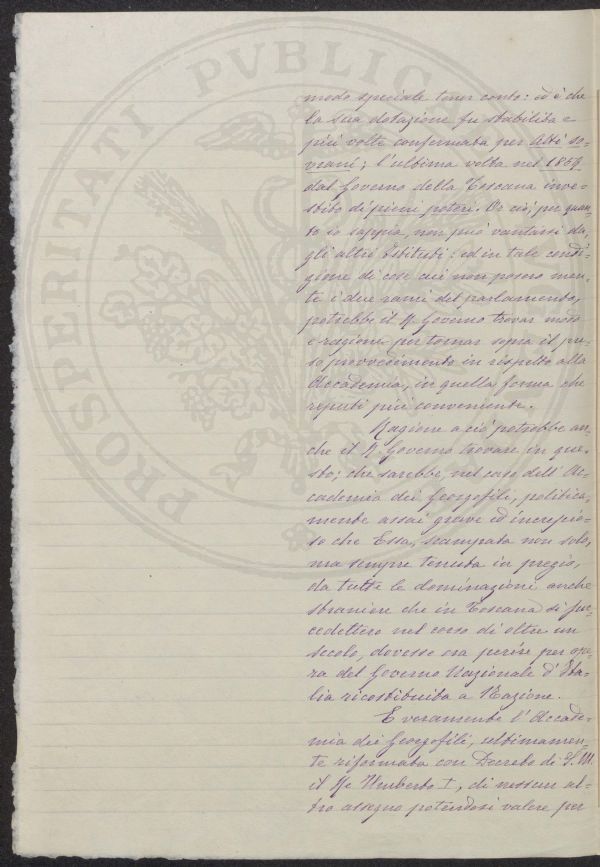 PROSPERITATI PVBLICAE
modo speciale tener conto: ed è che
la sua dotazione fu stabilita e
più volte confermata per Atti so-
vrani; l'ultima volta nel 1859
dal Governo della Toscana inve-
stito di pieni poteri. Or ciò, per quan-
to io sappia, non può vantarsi da-
gli altri Istituti: ed in tale condi-
zione di cose cui non posero men-
te i due rami del parlamento,
potrebbe il R. Governo trovar modo
e ragione per tornar sopra il pre-
so provvedimento in rispetto alla
Accademia, in quella forma che
reputi più conveniente.
Ragione a ciò potrebbe an-
che il R. Governo trovare in que-
sto; che sarebbe, nel caso dell'Ac-
cademia dei Georgofili, politica-
mente assai grave ed increscio-
so che Essa, scampata non solo,
ma sempre tenuta in pregio,
da tutte le dominazioni anche
straniere che in Toscana si suc-
cedettero nel corso di oltre un
secolo, dovesse ora perire per ope-
ra del Governo Nazionale d'Ita-
lia ricostituita a Nazione.
E veramente l'Accade-
mia dei Georgofili, ultimamen-
te riformata con Decreto di S. M.
il Re Umberto I, di nessun al-
tro assegno potendosi valere per